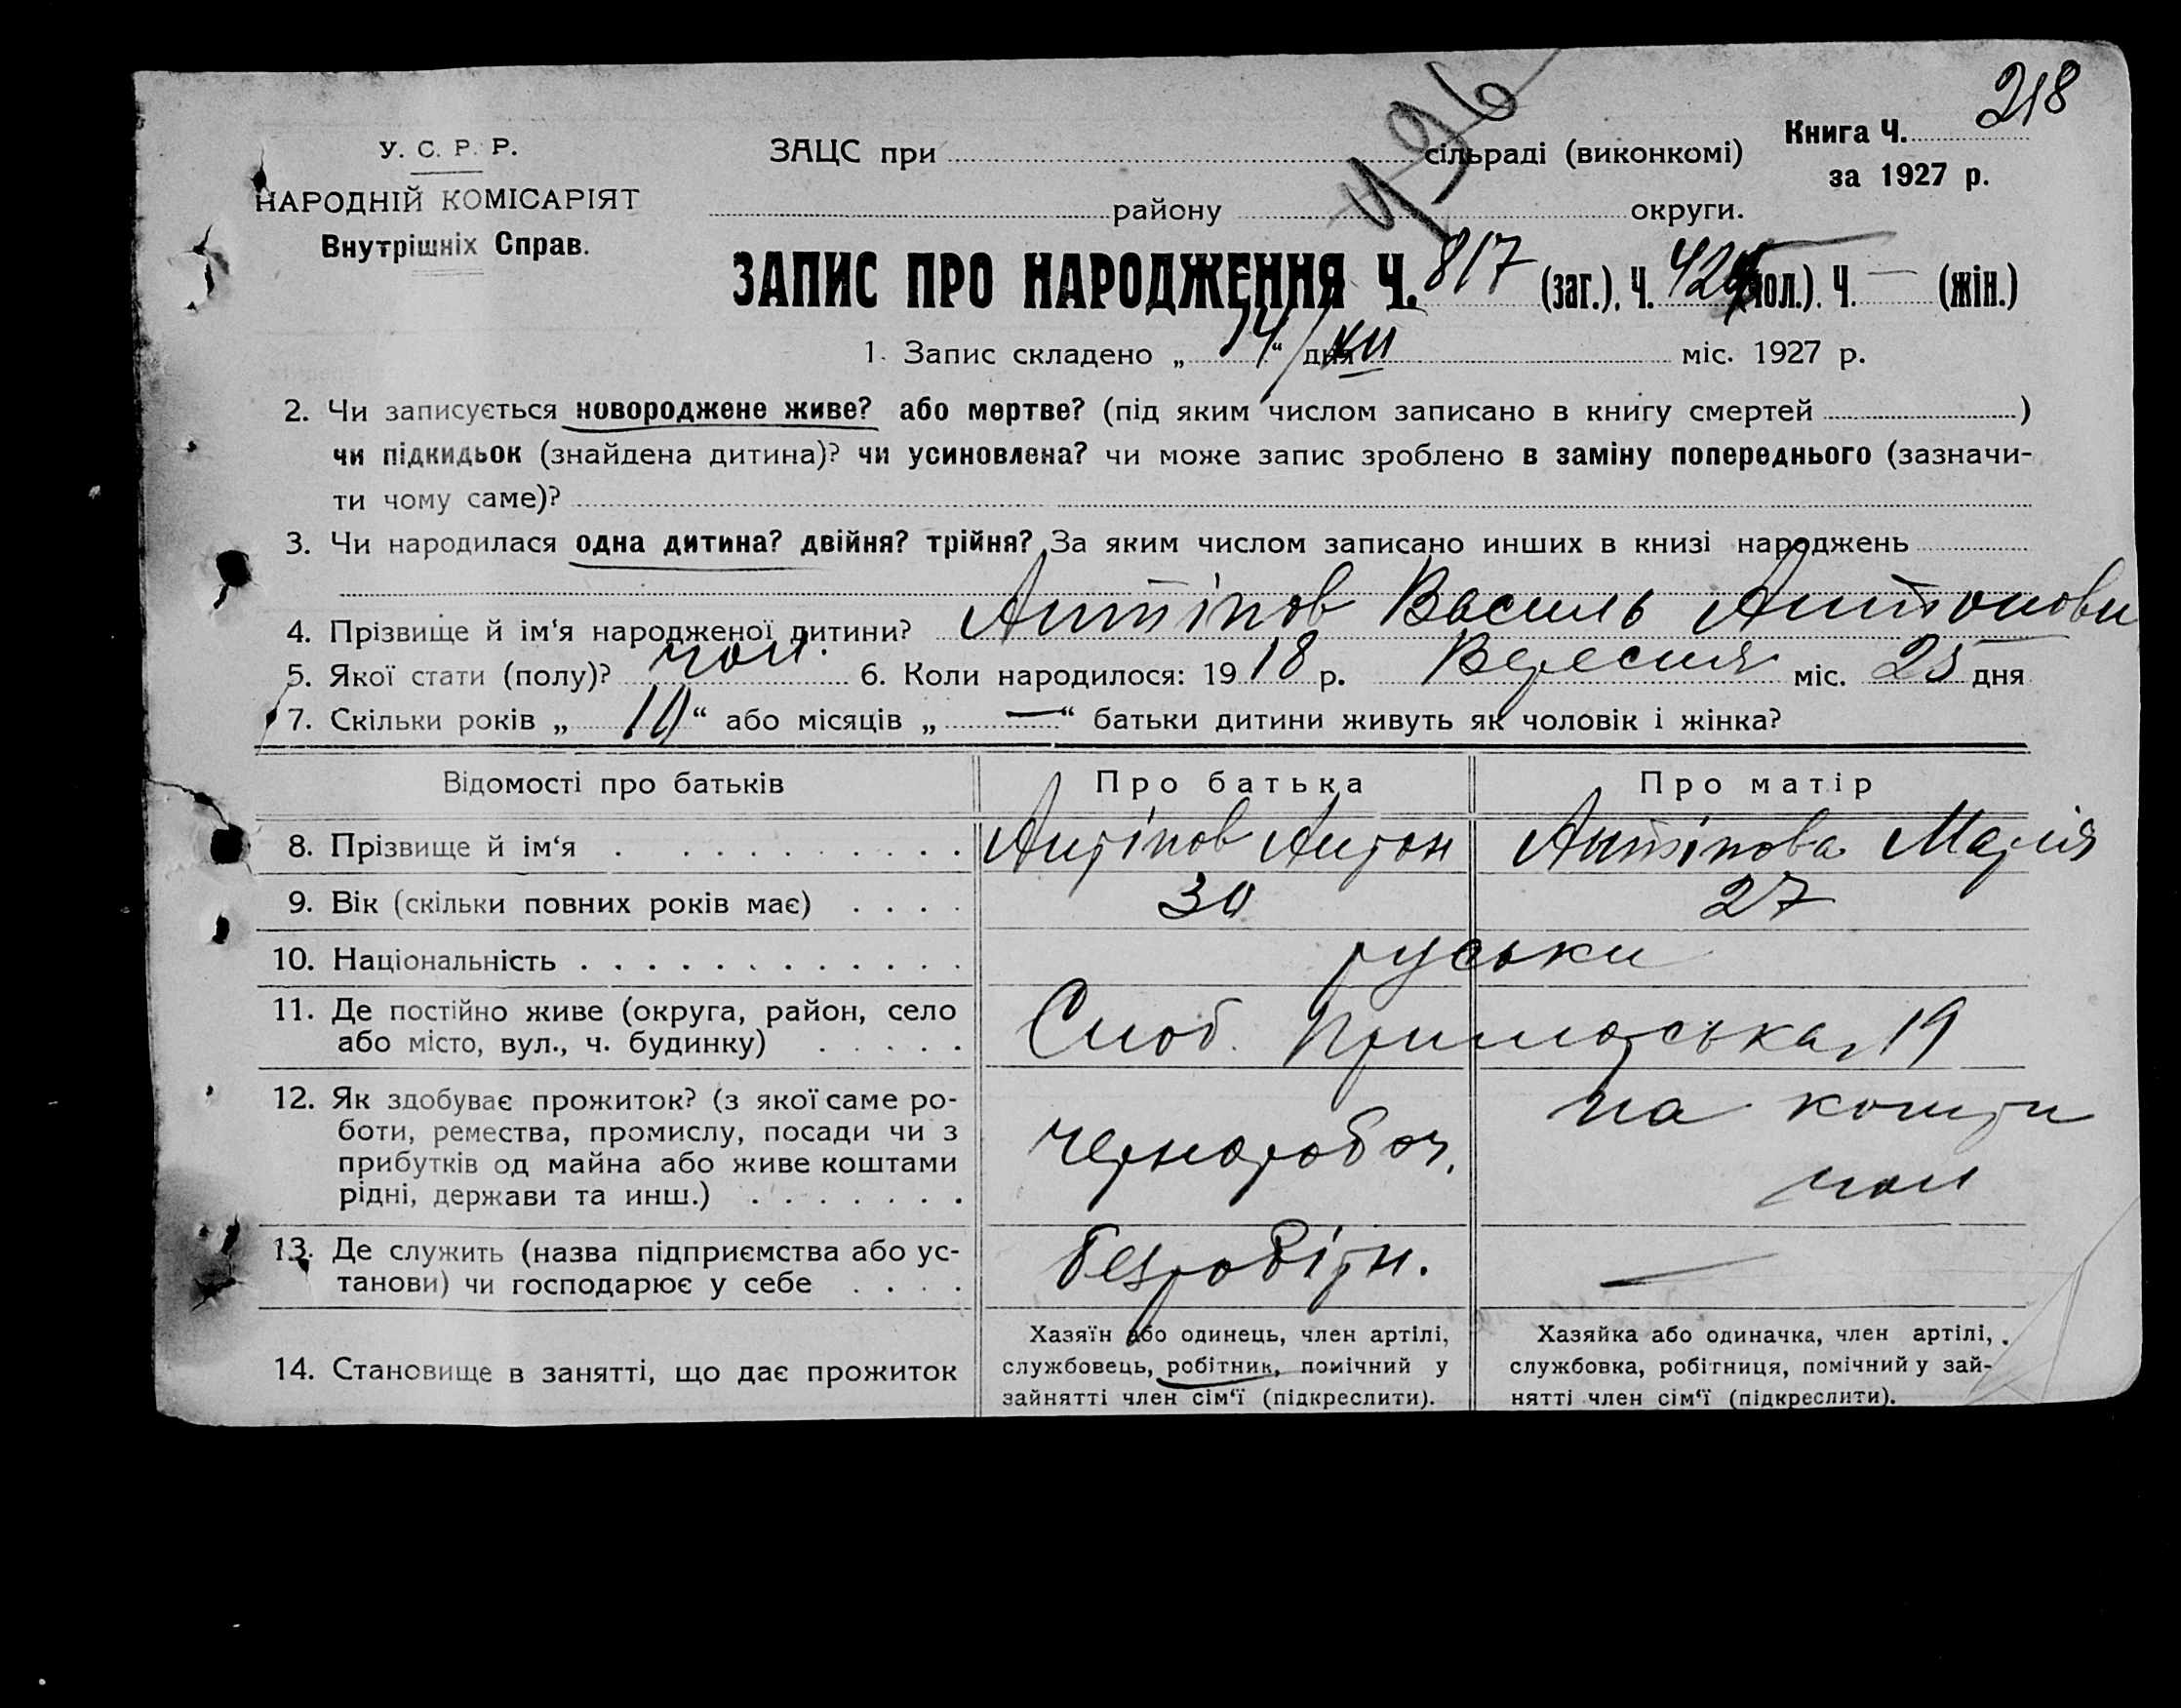 496
218
У. С. Р. Р.
НАРОДНІЙ КОМІСАРІЯТ
Внутрішніх Справ.
ЗАЦС при сільраді (виконкомі)
Книга Ч.
за 1927 р.
району округи.
ЗАПИС ПРО НАРОДЖЕННЯ Ч. 817 (заг.). Ч. 425 (чол.). Ч. — (жін.)
1. Запис складено „ 14 “ дня XII міс. 1927 р.
2. Чи записується новороджене живе? або мертве? (під яким числом записано в книгу смертей )
чи підкидьок (знайдена дитина)? чи усиновлена? чи може запис зроблено в заміну попереднього (зазначи-
ти чому саме)?
3. Чи народилася одна дитина? двійня? трійня? За яким числом записано инших в книзі народжень
4. Прізвище й ім‘я народженої дитини? Антіпов Василь Антонови
5. Якої стати (полу)? чол. 6. Коли народилося: 19 18 р. Вересня міс. 25 дня
7. Скільки років „ 10 “ або місяців „ — “ батьки дитини живуть як чоловік і жінка?
Відомості про батьків Про батька Про матір
8. Прізвище й ім‘я Антіпов Антон Антіпова Марія
9. Вік (скільки повних років має) 30 27
10. Національність руськи
11. Де постійно живе (округа, район, село
або місто, вул., ч. будинку) Слоб. Приморська, 19
12. Як здобуває прожиток? (з якої саме ро-
боти, ремества, промислу, посади чи з
прибутків од майна або живе коштами
рідні, держави та инш.) чернороboч. на кошти
чол
13. Де служить (назва підприємства або ус-
танови) чи господарює у себе безробітн. —
14. Становище в занятті, що дає прожиток
Хазяїн або одинець, член артілі,
службовець, робітник, помічний у
зайнятті член сім‘ї (підкреслити).
Хазяйка або одиначка, член артілі,
службовка, робітниця, помічний у зай-
нятті член сім‘ї (підкреслити).